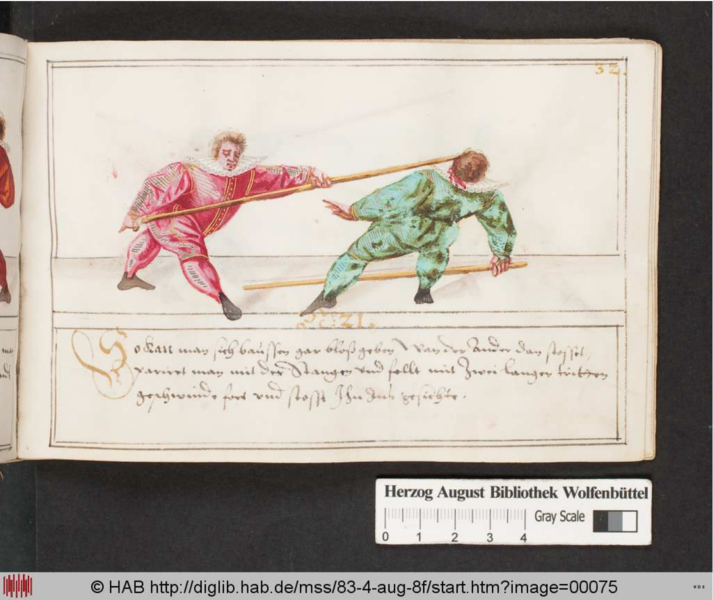 32.
So kan man sich baussen gar bloß geben Wan der Ander dan stosset,
pariert man mit der Stangen vnd fellt mit Zwei langen tritten
geschwinde fort vnd stosst Ihn Ins gesichte.
Herzog August Bibliothek Wolfenbüttel
Gray Scale
0 1 2 3 4
© HAB http://diglib.hab.de/mss/83-4-aug-8f/start.htm?image=00075